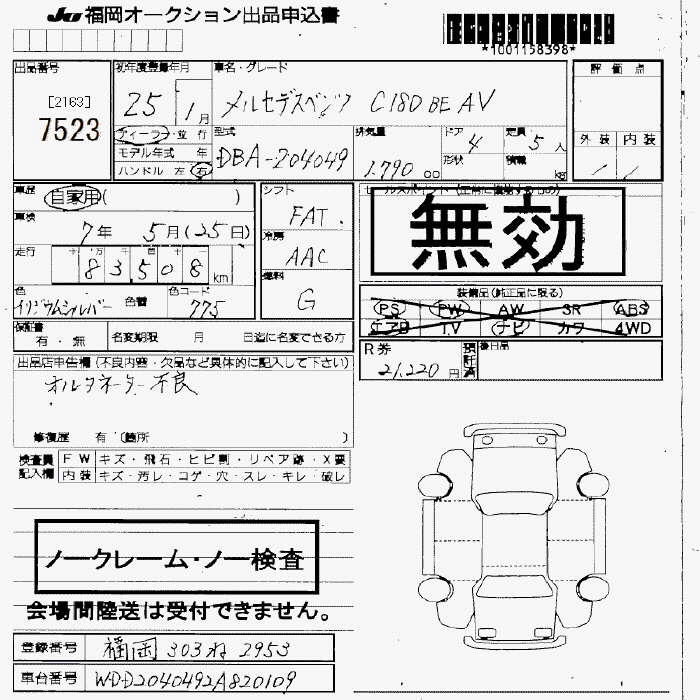 JU 福岡オークション出品申込書
*1001158398*
出品番号
[2163]
7523
初年度登録年月
25 1月
ディーラー・並行
モデル年式 年
ハンドル 左 右
車名・グレード
メルセデスベンツ C180 BE AV
型式
DBA-204049
排気量
1.790 cc
ドア 4
形状
定員 5人
積載 kg
評価点
外装 内装
車歴
自家用( )
車検
7年 5月(25日)
走行
十万 千 百 十
83508 km
色
イリジウムシルバー
色替
色コード
775
シフト
FAT.
冷房
AAC
燃料
G
セールスポイント(正常に機能するもの)
無効
装備品(純正品に限る)
PS PW AW SR ABS
エアB TV ナビ カワ 4WD
保証書
有・無
名変期限 月 日迄に名変できる方
R券
21,220円
預託済
後日品
出品店申告欄(不良内容・欠品など具体的に記入して下さい)
オルタネーター不良
修復歴 有(箇所 )
検査員記入欄
FW キズ・飛石・ヒビ割・リペア跡・X要
内装 キズ・汚レ・コゲ・穴・スレ・キレ・破レ
ノークレーム・ノー検査
会場間陸送は受付できません。
登録番号 福岡 303 ね 2953
車台番号 WDD2040492A820109